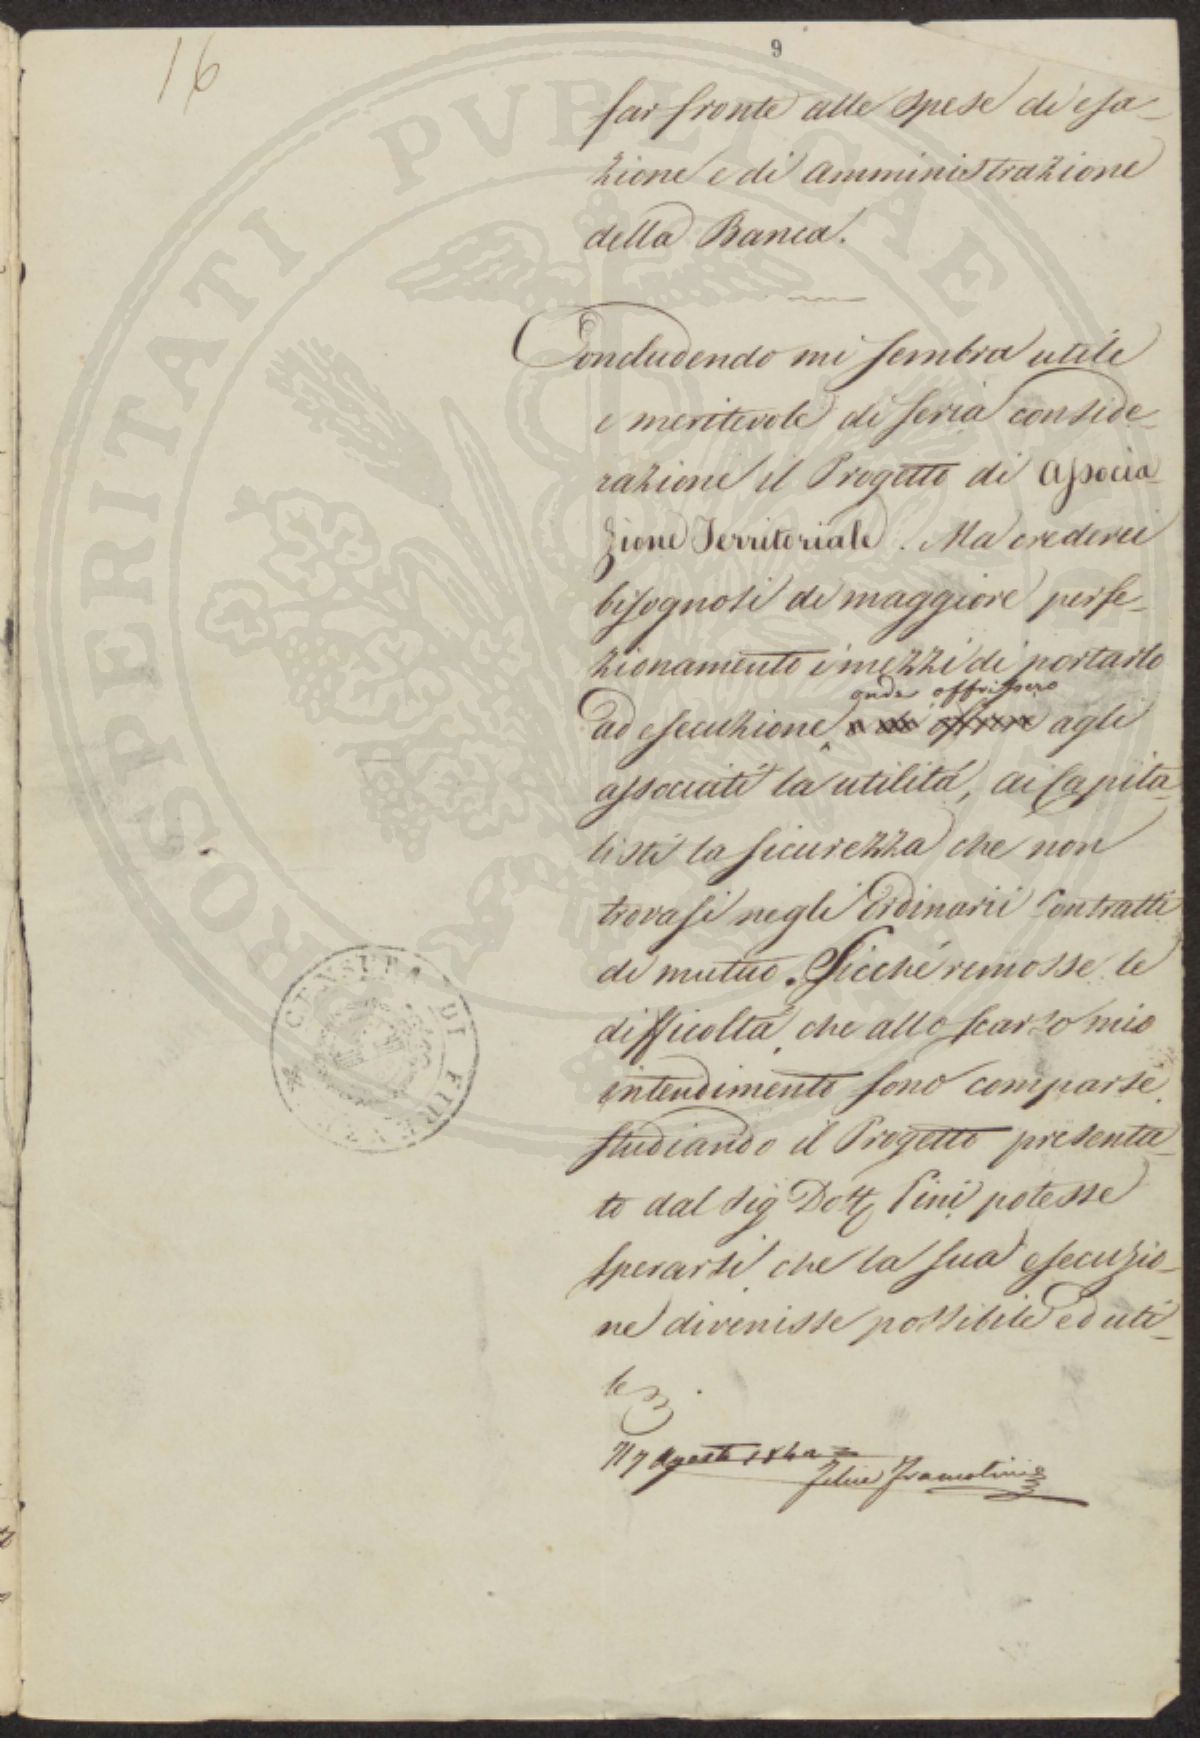 16
9
far fronte alle spese di esa-
zione e di amministrazione
della Banca.
Concludendo mi sembra utile
e meritevole di seria conside-
razione il Progetto di Associa-
zione Territoriale. Ma crederei
bisognosi di maggiore perfe-
zionamento i mezzi di portarlo
onde offrissero
ad esecuzione agli
associati la utilità, ai Capita-
listi la sicurezza che non
trovasi negli Ordinarii Contratti
di mutuo. Sicchè rimosse le
difficoltà, che allo scarso mio
intendimento sono comparse,
studiando il Progetto presenta-
to dal Sig Dott Pini, potesse
sperarsi che la sua esecuzio-
ne divenisse possibile ed uti-
le
7 Agosto
PROSPERITATI PVBLICAE
CENSURA DI FIRENZE